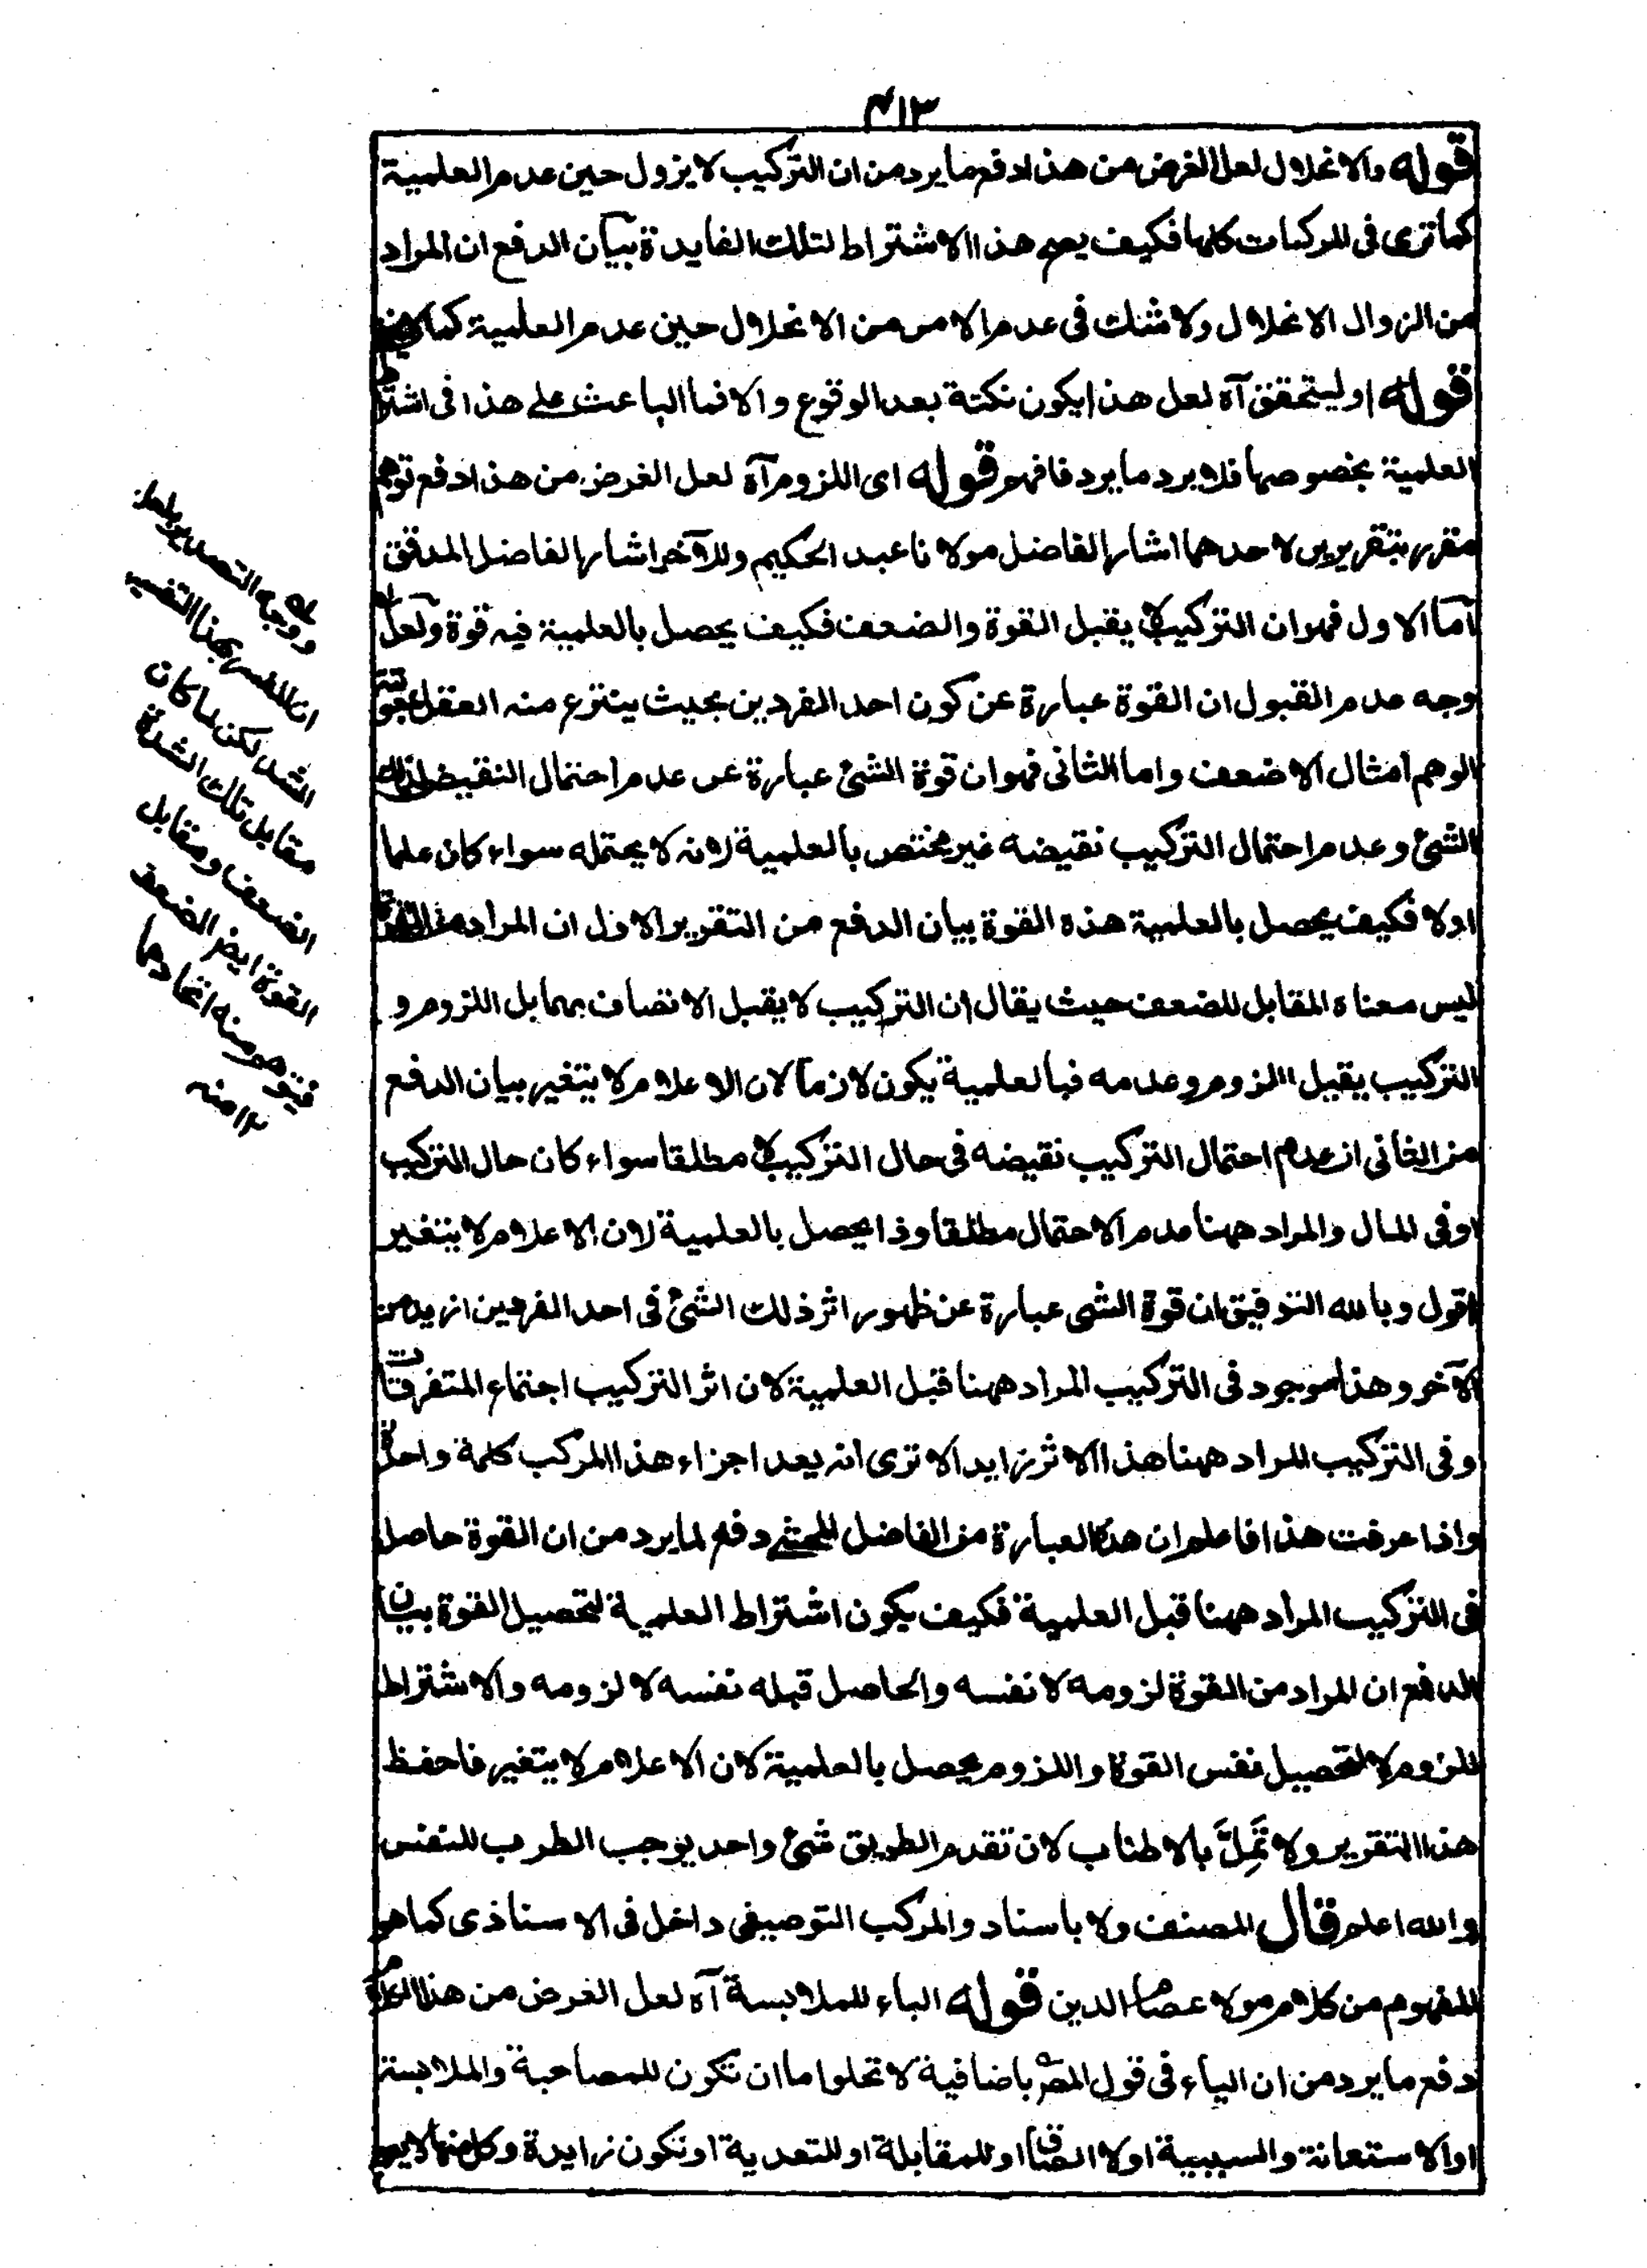 ٤١٣
قوله والانحلال لعل الغرض من هذا دفع ما يرد من ان التركيب لا يزول حين عدم العلمية
كما ترى فى المركبات كلها فكيف يصح هذا الاشتراط لتلك الفايدة بيان الدفع ان المراد
من الزوال الانحلال ولا شك فى عدم الامن من الانحلال حين عدم العلمية كما
قوله او ليتحقق آه لعل هذا يكون نكتة بعد الوقوع والا فما الباعث على هذا فى اشترا
العلمية بخصوصها فلا يرد ما يرد فافهم قوله اى اللزوم آه لعل الغرض من هذا دفع توهم
مقرر بتقريرين لاحدهما اشار الفاضل مولانا عبد الحكيم وللآخر اشار الفاضل المدقق
اما الاول فهو ان التركيب لا يقبل القوة والضعف فكيف يحصل بالعلمية فيه قوة ولعل
وجه عدم القبول ان القوة عبارة عن كون احد الفردين بحيث ينتزع منه العقل بمعونة
الوهم امثال الاضعف واما الثانى فهو ان قوة الشئ عبارة عن عدم احتمال النقيض لذلك
الشئ وعدم احتمال التركيب نقيضه غير مختص بالعلمية لانه لا يحتمله سواء كان علما
اولا فكيف يحصل بالعلمية هذه القوة بيان الدفع من التقرير الاول ان المراد من القوة
ليس معناه المقابل للضعف حيث يقال ان التركيب لا يقبل الاتصاف بهما بل اللزوم و
التركيب يقبل اللزوم وعدمه فبالعلمية يكون لازما لان الاعلام لا يتغير بيان الدفع
من الثانى ان عدم احتمال التركيب نقيضه فى حال التركيب لا مطلقا سواء كان حال التركيب
اوفى المال والمراد ههنا عدم الاحتمال مطلقا وذا يحصل بالعلمية لان الاعلام لا يتغير
اقول وبالله التوفيق ان قوة الشى عبارة عن ظهور اثر ذلك الشئ فى احد الفردين ازيد من
الآخر وهذا موجود فى التركيب المراد ههنا قبل العلمية لان اثر التركيب اجتماع المتفرقات
وفى التركيب المراد ههنا هذا الاثر زايد الا ترى انه يعد اجزاء هذا المركب كلمة واحدة
واذا عرفت هذا فاعلم ان هذه العبارة من الفاضل المحشى دفع لما يرد من ان القوة حاصل
فى التركيب المراد ههنا قبل العلمية فكيف يكون اشتراط العلمية لتحصيل القوة بيان
الدفع ان المراد من القوة لزومه لا نفسه والحاصل قبله نفسه لا لزومه والاشتراط
للزوم لا لتحصيل نفس القوة واللزوم يحصل بالعلمية لان الاعلام لا يتغير فاحفظ
هذا التقرير ولا تَمِلَّ بالاطناب لان تقدم الطريق شئ واحد يوجب الطرب للنفس
والله اعلم قال المصنف ولا باسناد والمركب التوصيفى داخل فى الاسناذى كما هو
المفهوم من كلام مولا عصام الدين قوله الباء للملابسة آه لعل الغرض من هذا
دفع ما يرد من ان الباء فى قول المصر باضافية لا تخلوا ما ان تكون للمصاحبة والملابسة
اوالاستعانة والسببية اولا لصاق او للمقابلة او للتعدية او تكون زايدة وكل منها لا يصح
ووجه التصدير بلعل
ان المفسر بهذا التفسير
الشد لكن لما كان
مقابل تلك الشدة
الضعف ومقابل
القوة ايض الضعف
فيتوهم منه اتحادهما
١٢ منه